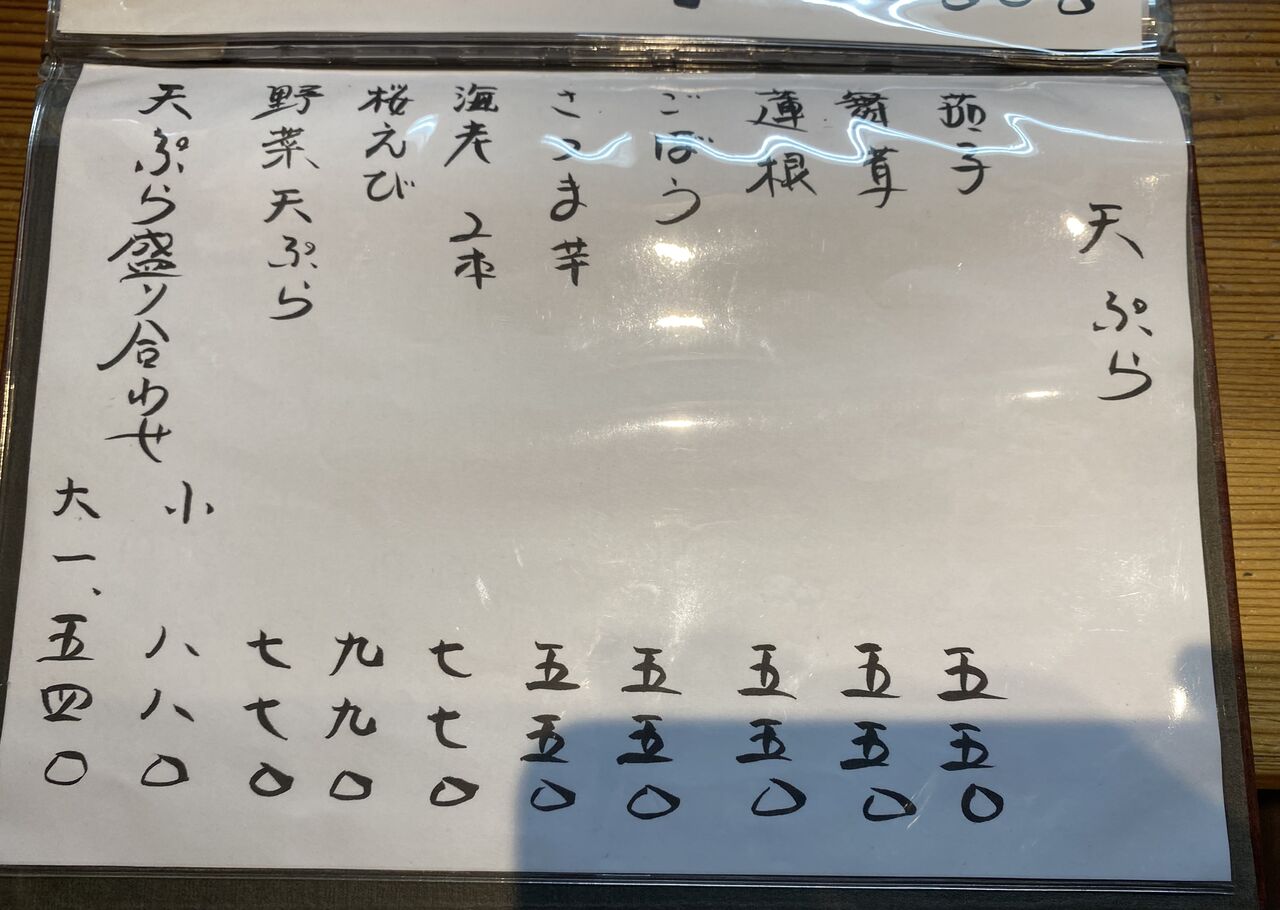 天ぷら
茄子 五五〇
舞茸 五五〇
蓮根 五五〇
ごぼう 五五〇
さつま芋 五五〇
海老 2本 七七〇
桜えび 九九〇
野菜天ぷら 七七〇
天ぷら盛り合わせ
小 八八〇
大 一、五四〇